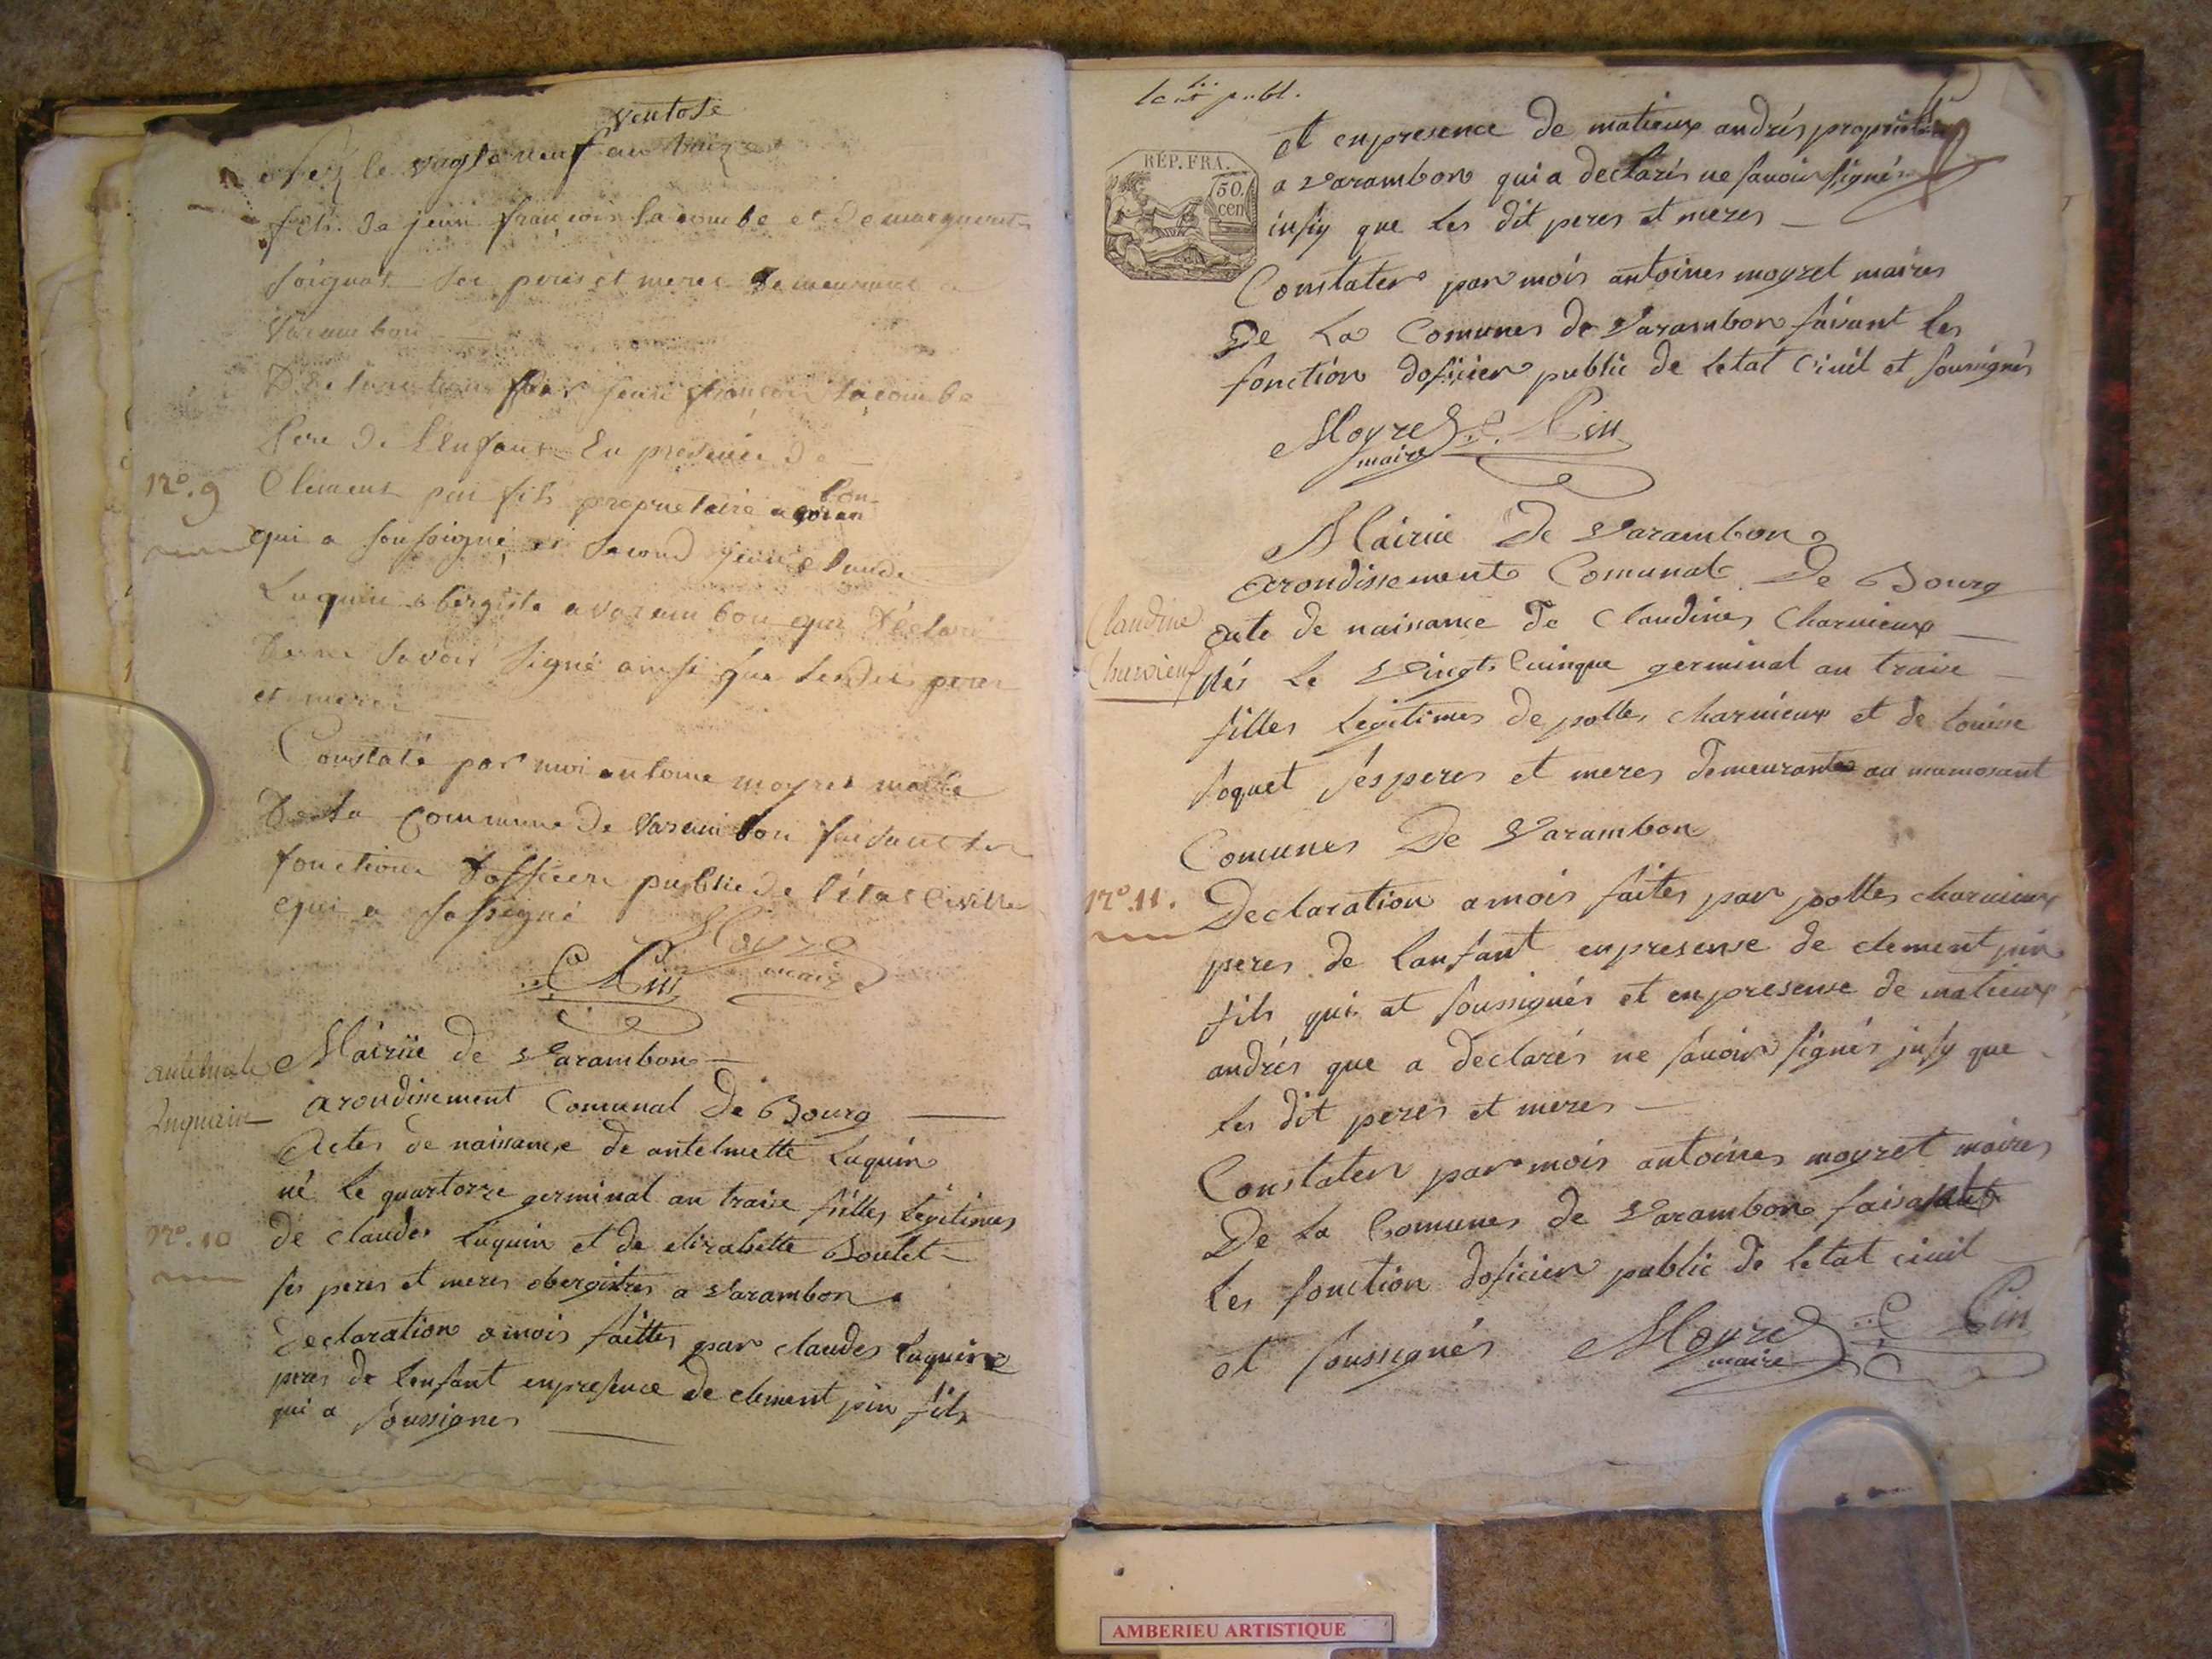 ventose
né le vingt neuf an traize
fils de jean françois lacombe et de marguerite
soignat ses peres et meres demeurant a
Varambon
Declaration par jean françois lacombe
Pere de l'enfant En presence de
N°. 9
Clement pin fils proprietaire a
bon
qui a sousigné et second jean claude
Luquin obergiste a varambon qui Déclaré
De ne Savoir Signé ainsi que les dit peres
et meres
Constaté par moi antoine moyret maire
De la Commune de Varambon faisant les
fonctions d'officier public de l'état Civille
qui a sousigné
Moyret
maire
C Pin
antelmete
Luquin
Mairiie de Varambon
arondissement Comunal de Bourg
Actes de naissance de antelmette Luquin
né le quartorze germinal an traise filles légitimes
N°. 10
de claudes Luquin et de elizabette Boulet
ses peres et meres obergistes a Varambon
Declaration a mois faittes par claudes Luquin
peres de l'enfant enpresence de clement pin fils
qui a soussignes
RÉP. FRA.
50
cen
et enpresence de matieux andrés proprietaire
a Varambon qui a declarés ne savoir signés
insiy que les dit peres et meres
Constater par mois antoines moyret maires
De La Comunes de Varambon faisant les
fonction doficier public de letat Civil et soussignés
Moyret
maire
C. Pin
Mairiie De Varambon
arondissement Comunal De Bourg
Claudine
Charvieux
acte de naissance De Claudines Charvieux
Nés Le Vingt Cuinque germinal an traise
filles legitimes de polles charvieux et de louise
foquet ses peres et meres demeurantes au mamosant
Comunes De Varambon
N°. 11.
Declaration a mois faites par polles charvieux
peres de lanfant enpresense de clement pin
fils qui at soussignés et en presense de matieux
andrés que a declarés ne savoir signés insy que
les dit peres et meres
Constater par mois antoines moyret maires
De La Comunes de Varambon faisant
les fonction doficier public de letat civil
et soussignés
Moyret
maire
C Pin
AMBERIEU ARTISTIQUE